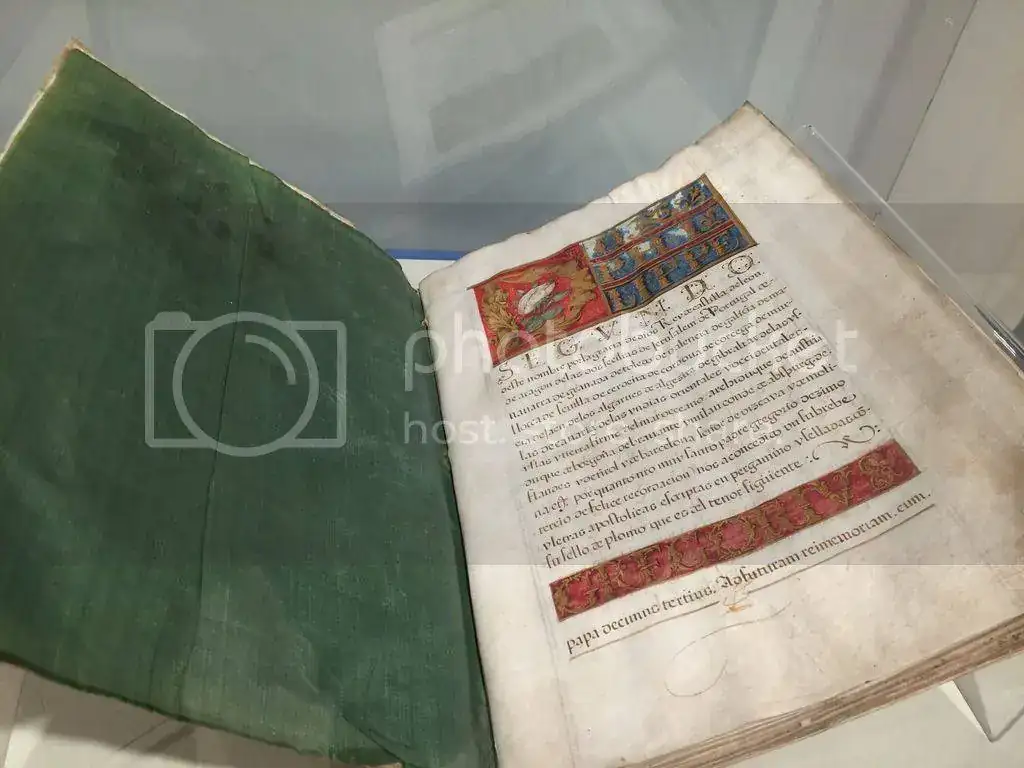 SEGVNDO
deste nombre por la gracia de dios Rey de castilla de leon
de aragon de las dos sicilias de Jerusalem de Portugal de
nauarra de granada de toledo de valencia de galicia de ma
llorca de seuilla de cerdeña de cordoua de corcega de mur
de los algarues de algezira de gibraltar de las ys
las de canaria de las yndias orientales y occidentales
yslas y tierra firme del mar oceano archiduque de austria
duque de borgoña de brauante y milan conde de abspurg de
flandes y de tirol y de barcelona señor de vizcaya y de moli
na ett. por quanto nro muy santo padre gregorio dezimo
tercio de felice recordacion nos concedio vn su breue
y letras apostolicas escriptas en pergamino y selladas con
su sello de plomo que es del tenor siguiente :
papa decimus tertius. Ad futuram rei memoriam. cum
photobucket
host. store. share.